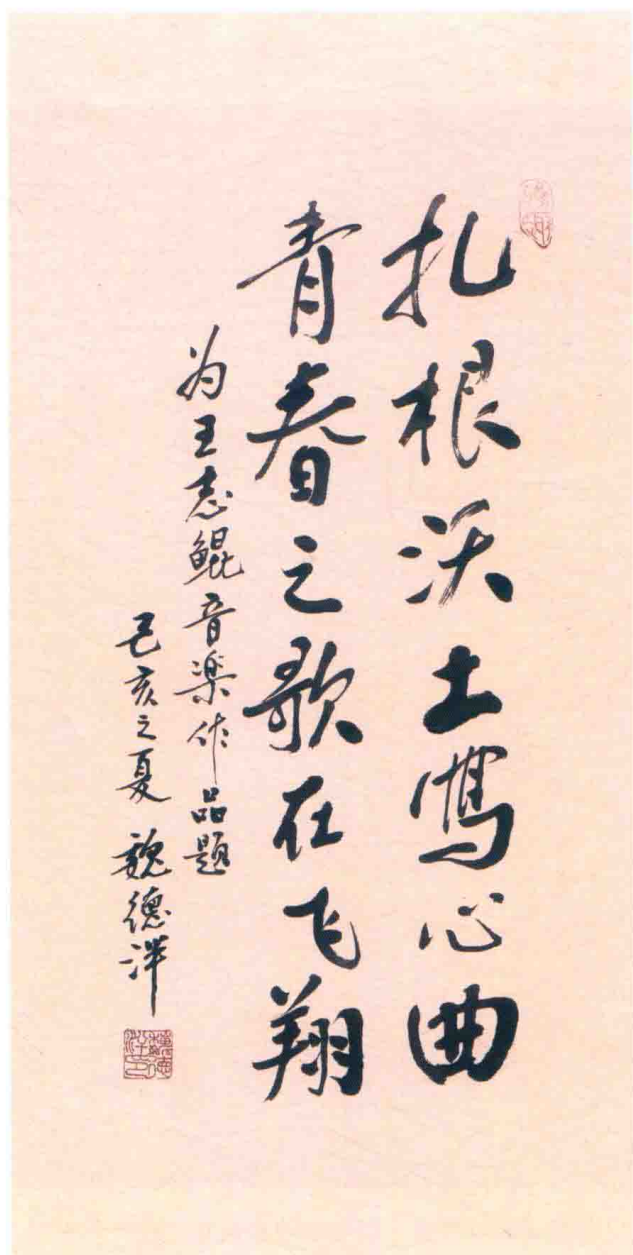 扎根沃土寫心曲
青春之歌在飞翔
为王志鲲音楽作品题
己亥之夏 魏德泮